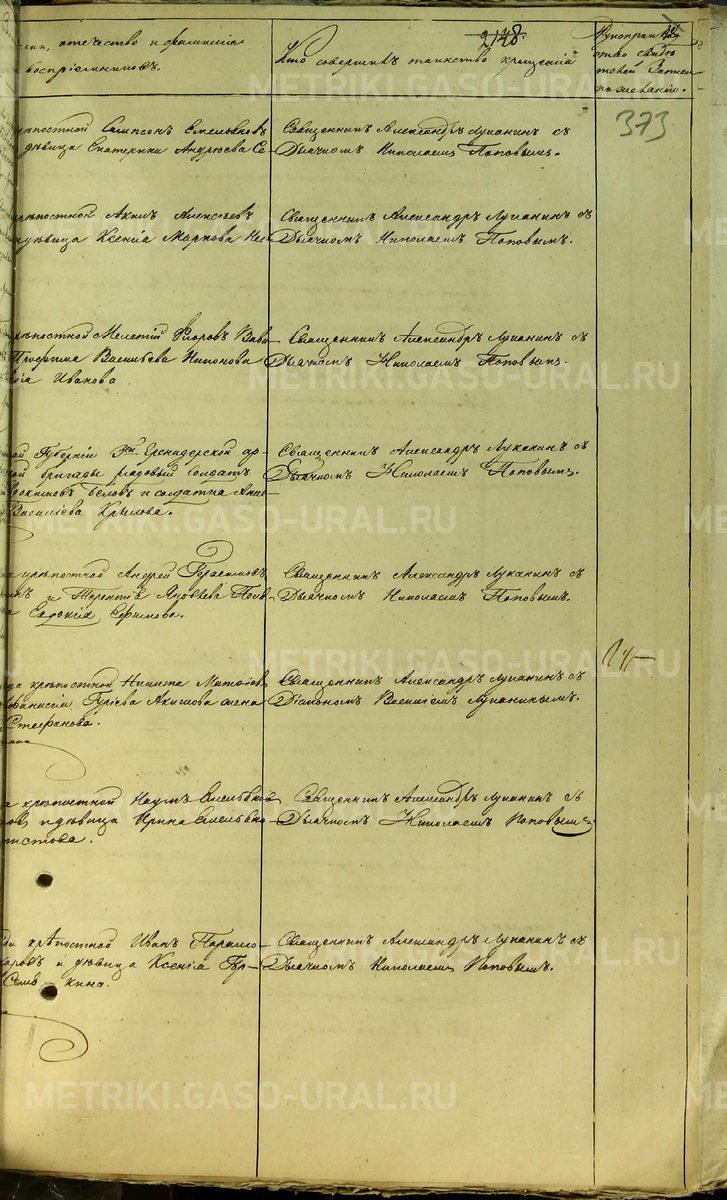 2148.
отчество и фамилія
воспріемниковъ.
Кто совершилъ таинство крещенія
Рукоприклад
ство свидѣ
телей записи
по желанію.
373
Сампсонъ Емельяновъ
дѣвица Екатерина Андреева Се
Священникъ Александръ Луканинъ съ
Дьячкомъ Николаемъ Поповымъ.
Акилъ Алексѣевъ
дѣвица Ксенія Маркова
Священникъ Александръ Луканинъ съ
Дьячкомъ Николаемъ Поповымъ.
Мелетій Фларовъ Вави
Васильева Никонова
Иванова
Священникъ Александръ Луканинъ съ
Дьячкомъ Николаемъ Поповымъ.
ой Губерніи Гренадерской ар
ой бригады рядовый солдатъ
Бѣловъ и солдатка Анна
Василіева Крылова.
Священникъ Александръ Луканинъ съ
Дьячкомъ Николаемъ Поповымъ.
крѣпостной Андрей Герасимовъ
и Терентій Яковлева
Евдокія Ефимова.
Священникъ Александръ Луканинъ съ
Дьячкомъ Николаемъ Поповымъ.
крѣпостной Никита Матвѣевъ
Гуріева Акишова жена
Стефанова.
Священникъ Александръ Луканинъ съ
Діакономъ Василіемъ Луканинымъ.
а крѣпостной Наумъ Емельяновъ
дѣвица Ирина Емельяно
истова.
Священникъ Александръ Луканинъ съ
Дьячкомъ Николаемъ Поповымъ.
крѣпостной Иванъ Парамо
и дѣвица Ксенія Гур
кина.
Священникъ Александръ Луканинъ съ
Дьячкомъ Николаемъ Поповымъ.
METRIKI.GASO-URAL.RU